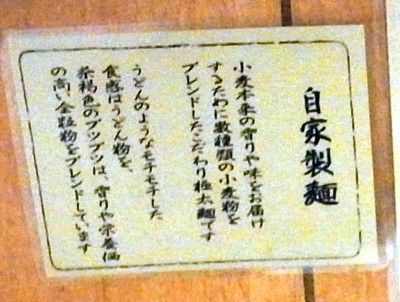 自家製麺
小麦本来の香りや味をお届け
するために数種類の小麦粉を
ブレンドしたこだわり極太麺です
うどんのようなモチモチした
食感はうどん粉を、
茶褐色のブツブツは、香りや栄養価
の高い全粒粉をブレンドしています